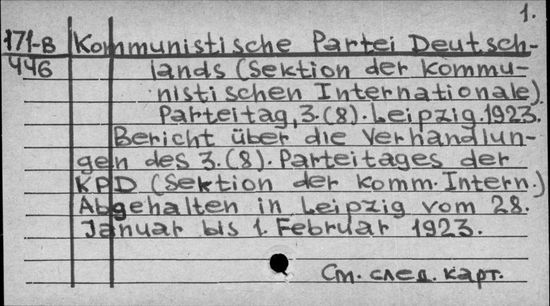 1.
171-В Kommunistische Partei Deutsch-
446 lands (Sektion der Kommu-
nistischen Internationale)
Parteitag, 3. (8). Leipzig. 1923.
Bericht über die Verhandlun-
gen des 3. (8). Parteitages der
KPD (Sektion der Komm. Intern.)
Abgehalten in Leipzig vom 28.
Januar bis 1. Februar 1923.
См. след. карт.